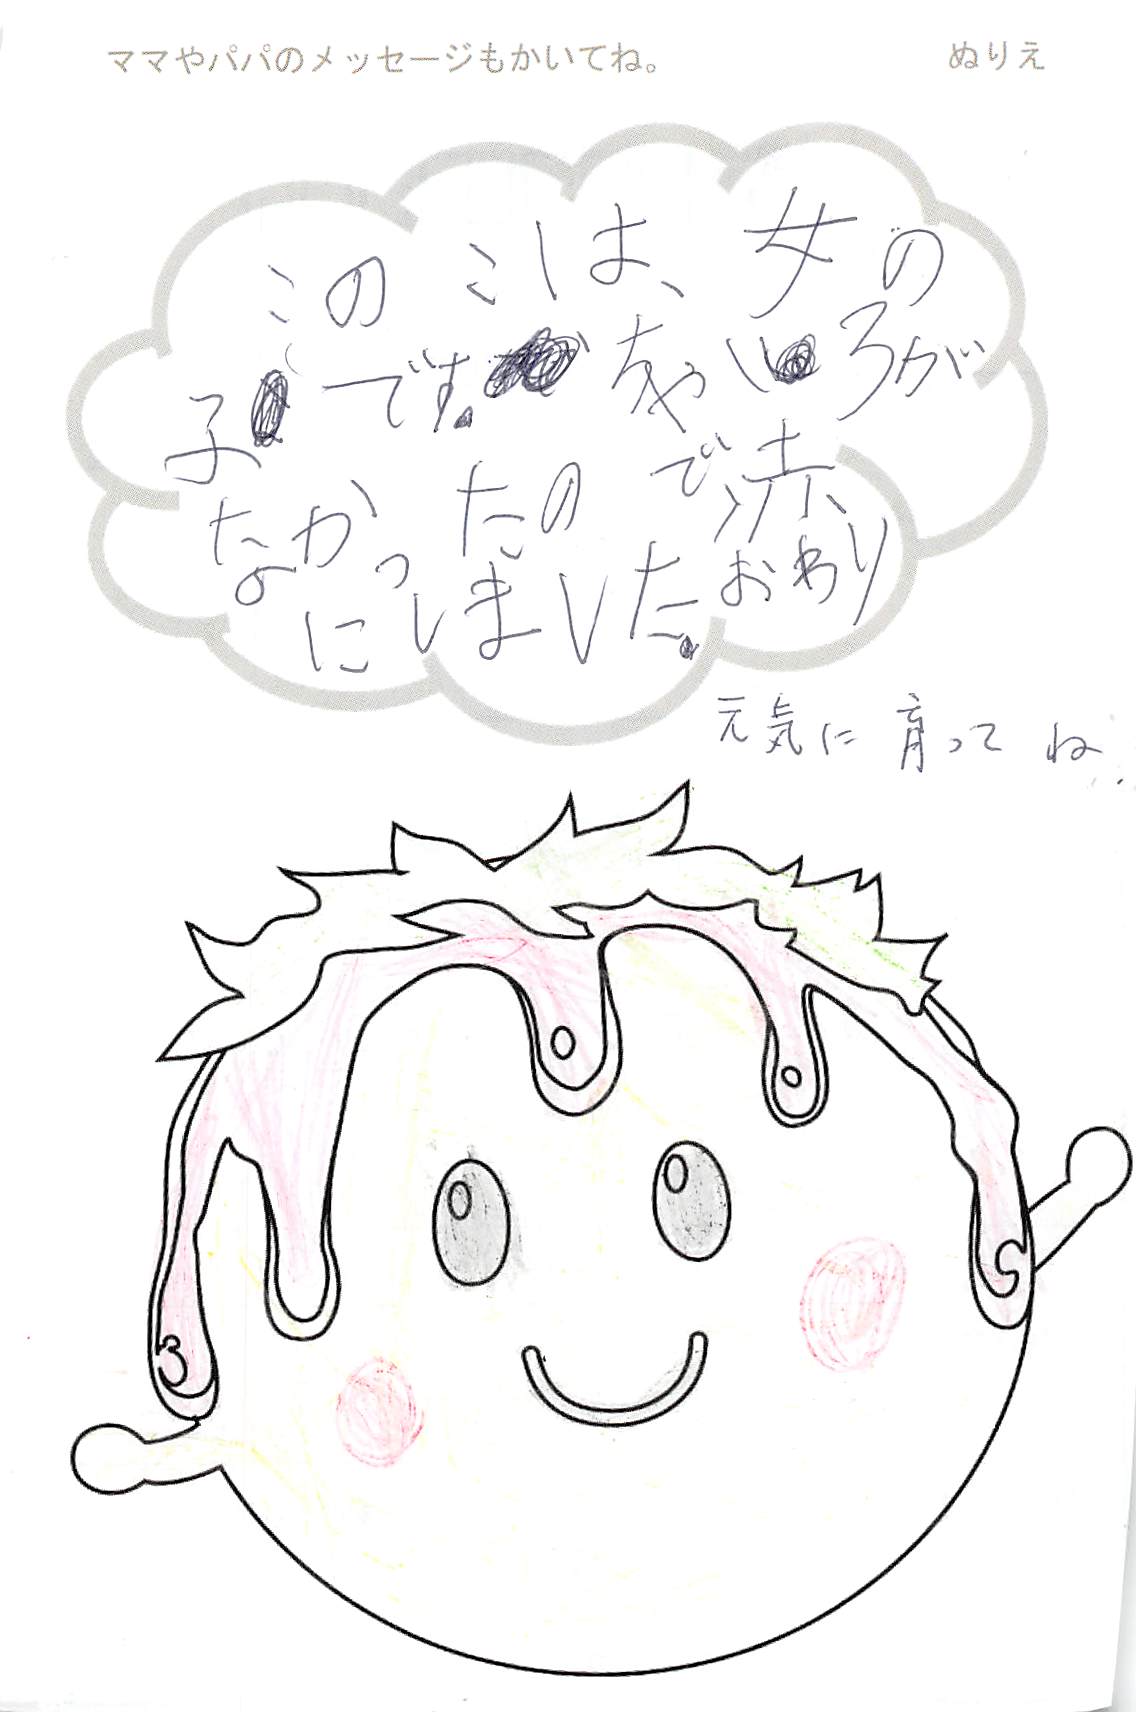 ママやパパのメッセージもかいてね。
ぬりえ
このこは、女の
子です。ちゃいろが
なかったので赤
にしました。おわり
元気に育ってね